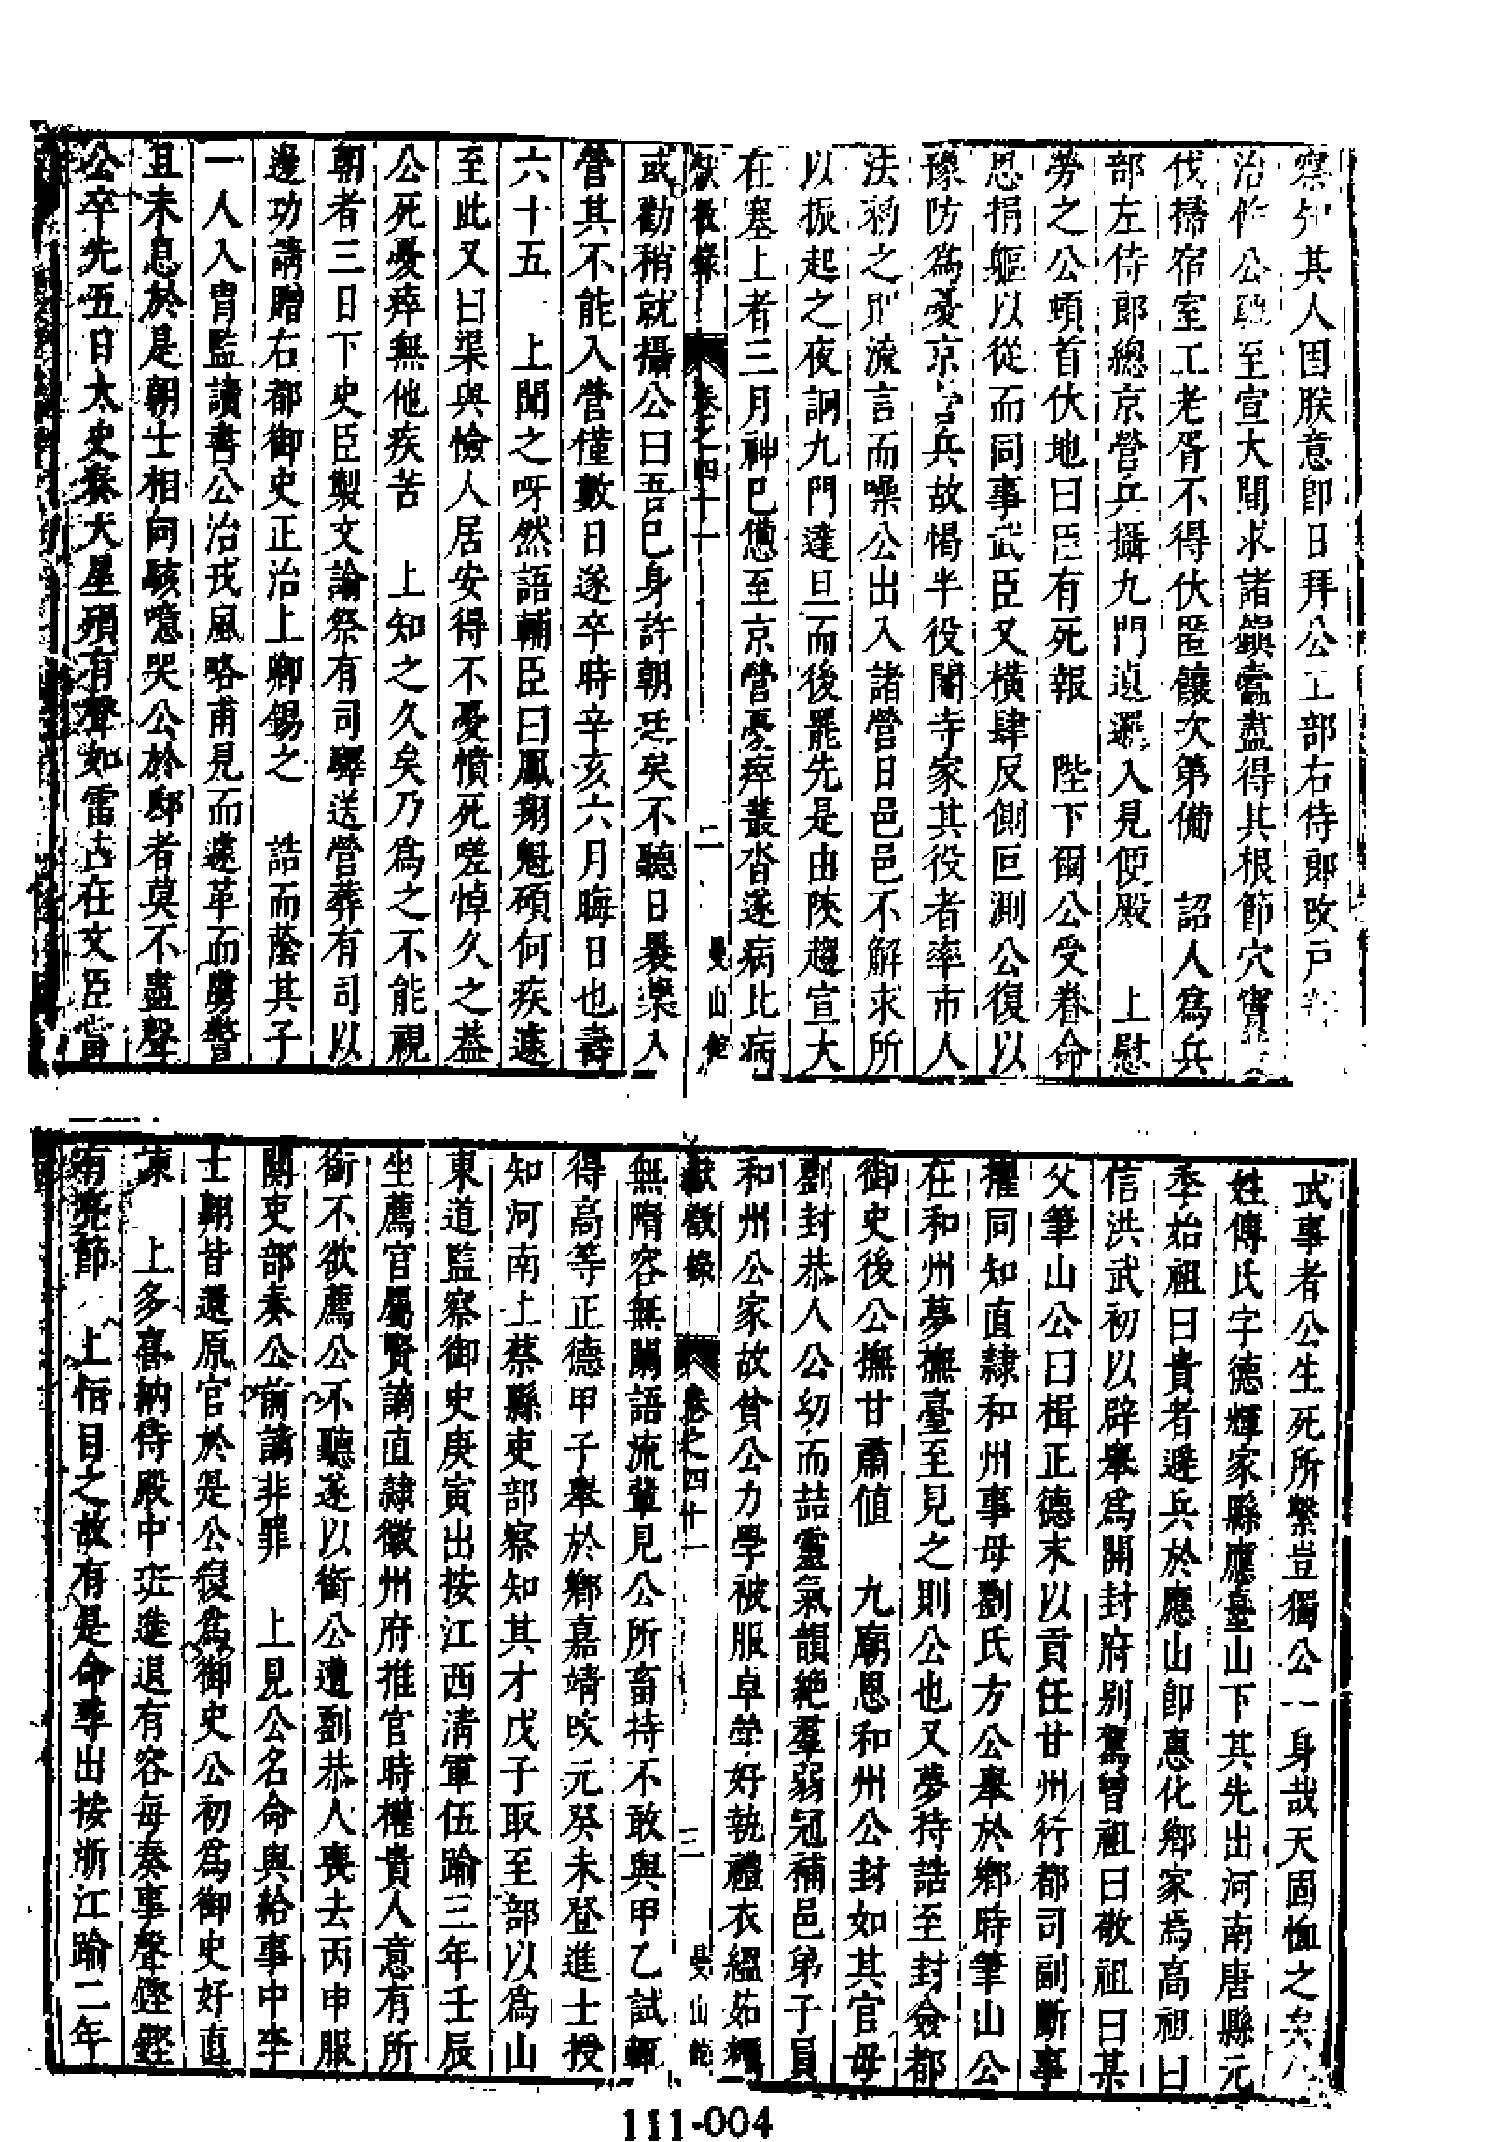 察知其人因朕意卽日拜公工部右侍郎改戸部
治餉公馳至宣大間求諸鎭蠹盡得其根節穴竇
伐掃宿窒工老胥不得伏匿饟次第備　詔人爲兵
部左侍郎總京營兵攝九門逈遷入見便殿　上慰
勞之公頓首伏地曰臣有死報　陛下爾公受眷命
思捐軀以從而同事武臣又橫肆反側叵測公復以
豫防爲憂京營兵故楬半役閹寺家其役者率市人
法剏之則流言而噪公出入諸營日邑邑不解求所
以振起之夜詗九門達旦而後罷先是由陜趨宣大
在塞上者三月神巳憊至京營憂瘁叢沓遂病比病
獻徵錄　卷之四十一　二　曼山館
或勸稍就攝公曰吾巳身許朝廷矣不聽日暴槩入
營其不能入營僅數日遂卒時辛亥六月晦日也壽
六十五　上聞之呀然語輔臣曰鳳翔魁碩何疾遽
至此又曰渠與憸人居安得不憂憤死嗟悼久之葢
公死憂瘁無他疾苦　上知之久矣乃爲之不能視
朝者三日下史臣製文諭祭有司驛送營葬有司以
邊功請贈右都御史正治上卿錫之　誥而蔭其子
一人入胄監讀書公治戎風略甫見而遽革而虜警
且未息於是朝士相向駭噫哭公於邸者莫不盡聲
公卒先五日太史奏大星殞有聲如雷占在文臣當
武事者公生死所繫豈獨公一身哉天固恤之矣公
姓傅氏字德輝家縣應臺山下其先出河南唐縣元
季始祖曰貴者避兵於應山卽惠化鄕家焉高祖曰
信洪武初以辟舉爲開封府别駕曾祖曰敬祖曰某
父筆山公曰楫正德末以貢任甘州行都司副斷事
擢同知直隷和州事母劉氏方公舉於鄕時筆山公
在和州夢撫臺至見之則公也又夢持誥至封僉都
御史後公撫甘肅値　九廟恩和州公封如其官母
劉封恭人公幼而詰靈氣韻絕羣弱冠補邑弟子員
和州公家故貧公力學被服卓犖好執禮衣縕如糲
獻徵錄　卷之四十一　三　曼山館
無隋容無闌語流輩見公所畜持不敢與甲乙試輒
得高等正德甲子舉於鄕嘉靖改元癸未登進士授
知河南上蔡縣吏部察知其才戊子取至部以爲山
東道監察御史庚寅出按江西淸軍伍踰三年壬辰
坐薦官屬賢謫直隷徽州府推官時權貴人意有所
銜不欲薦公不聽遂以銜公遭劉恭人喪去丙申服
闋吏部奏公前謫非罪　上見公名命與給事中李
士翺皆還原官於是公復爲御史公初爲御史好直
諫　上多喜納侍殿中班進退有容每奏事聲鏗鏗
有亮節　上恒目之故有是命尋出按浙江踰二年
111-004